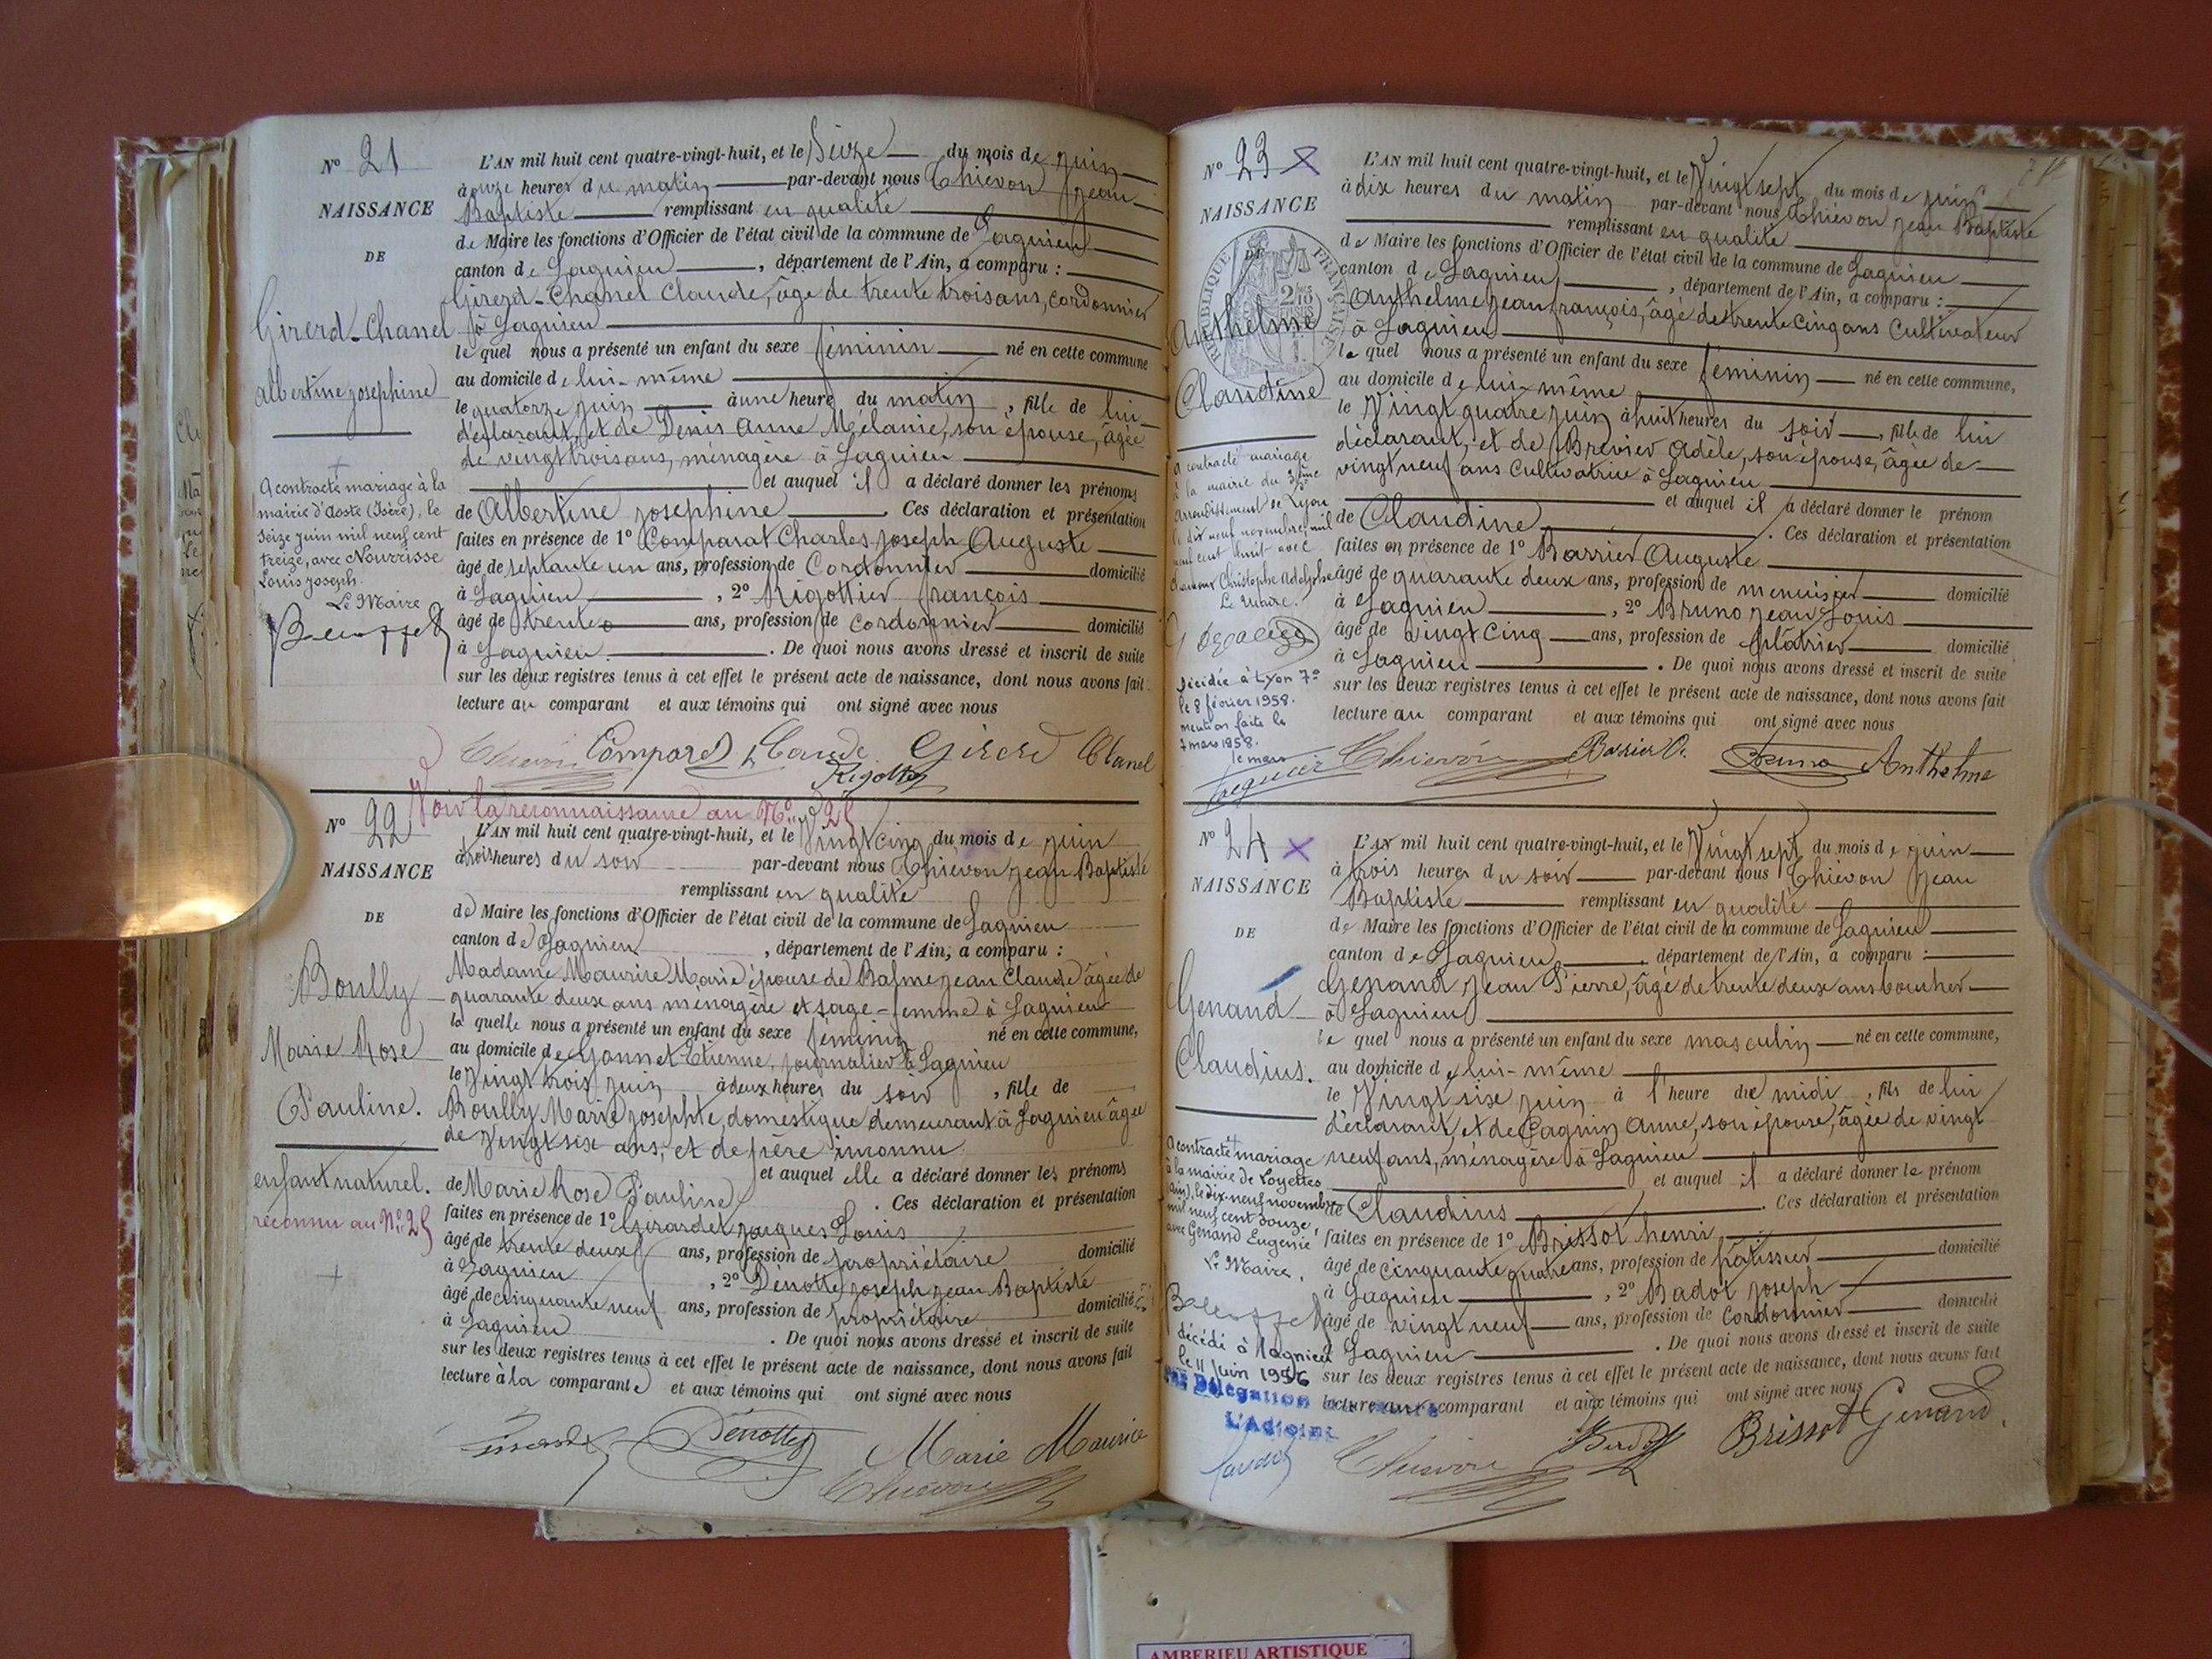 N° 21
NAISSANCE
DE
Girerd-Chanel
Albertine Josephine
A contracté mariage à la
mairie d'Aoste (Isère), le
seize juin mil neuf cent
treize, avec Nourrisse
Louis Joseph.
Le Maire
L'AN mil huit cent quatre-vingt-huit, et le Seize du mois de juin
à onze heures du matin par-devant nous Chievon Jean
Baptiste remplissant en qualité
de Maire les fonctions d'Officier de l'état civil de la commune de Lagnieu
canton de Lagnieu, département de l'Ain, a comparu :
Girerd-Chanel Claude, âgé de trente trois ans, cordonnier
à Lagnieu
lequel nous a présenté un enfant du sexe féminin né en cette commune
au domicile de lui-même
le quatorze juin à une heure du matin, fille de lui
déclarant, et de Denis Anne Mélanie, son épouse, âgée
de vingt trois ans, ménagère à Lagnieu
et auquel il a déclaré donner les prénoms
de Albertine Josephine. Ces déclaration et présentation
faites en présence de 1° Comparat Charles Joseph Auguste
âgé de septante un ans, profession de Cordonnier domicilié
à Lagnieu, 2° Rigottier François
âgé de trente ans, profession de cordonnier domicilié
à Lagnieu. De quoi nous avons dressé et inscrit de suite
sur les deux registres tenus à cet effet le présent acte de naissance, dont nous avons fait
lecture au comparant et aux témoins qui ont signé avec nous
Chievon Comparat Claude Girerd Chanel
Rigottier
Voir la reconnaissance au N° 25
N° 22
NAISSANCE
DE
Boully
Marie Rose
Pauline.
enfant naturel.
reconnu au N° 25
L'AN mil huit cent quatre-vingt-huit, et le Vingt cinq du mois de juin
à trois heures du soir par-devant nous Chievon Jean Baptiste
remplissant en qualité
de Maire les fonctions d'Officier de l'état civil de la commune de Lagnieu
canton de Lagnieu, département de l'Ain, a comparu :
Madame Maurice Marie épouse de Balme Jean Claude âgée de
quarante deux ans ménagère et sage-femme à Lagnieu
laquelle nous a présenté un enfant du sexe féminin né en cette commune,
au domicile de Gonnet Etienne, journalier à Lagnieu
le Vingt trois juin à deux heures du soir, fille de
Boully Marie Josephte, domestique demeurant à Lagnieu âgée
de vingt six ans, et de père inconnu
et auquel elle a déclaré donner les prénoms
de Marie Rose Pauline. Ces déclaration et présentation
faites en présence de 1° Girardet Jacques Louis
âgé de trente deux ans, profession de propriétaire domicilié
à Lagnieu, 2° Dénottes Joseph Jean Baptiste
âgé de cinquante neuf ans, profession de propriétaire domicilié
à Lagnieu. De quoi nous avons dressé et inscrit de suite
sur les deux registres tenus à cet effet le présent acte de naissance, dont nous avons fait
lecture à la comparante et aux témoins qui ont signé avec nous
Dénottes Marie Maurice
Chievon
N° 23
NAISSANCE
DE
RÉPUBLIQUE FRANÇAISE
Anthelme
Claudine
A contracté mariage
à la mairie du 3ème
arrondissement de Lyon
le dix neuf novembre mil
neuf cent huit avec
Christophe Adolphe
Le Maire.
Décédée à Lyon 7e
le 8 février 1958.
mention faite le
7 mars 1958.
le maire
L'AN mil huit cent quatre-vingt-huit, et le Vingt sept du mois de juin
à dix heures du matin par-devant nous Chievon Jean Baptiste
remplissant en qualité
de Maire les fonctions d'Officier de l'état civil de la commune de Lagnieu
canton de Lagnieu, département de l'Ain, a comparu :
Anthelme Jean François, âgé de trente cinq ans Cultivateur
à Lagnieu
lequel nous a présenté un enfant du sexe féminin né en cette commune,
au domicile de lui-même
le Vingt quatre juin à huit heures du soir, fille de lui
déclarant, et de Brevier Adèle, son épouse, âgée de
vingt neuf ans Cultivatrice à Lagnieu
et auquel il a déclaré donner le prénom
de Claudine. Ces déclaration et présentation
faites en présence de 1° Barrier Auguste
âgé de quarante deux ans, profession de menuisier domicilié
à Lagnieu, 2° Bruno Jean Louis
âgé de vingt cinq ans, profession de plâtrier domicilié
à Lagnieu. De quoi nous avons dressé et inscrit de suite
sur les deux registres tenus à cet effet le présent acte de naissance, dont nous avons fait
lecture au comparant et aux témoins qui ont signé avec nous
Chievon Barrier A. Bruno Anthelme
N° 24
NAISSANCE
DE
Genand
Claudius.
A contracté mariage
à la mairie de Loyettes
(Ain), le dix-neuf novembre
mil neuf cent douze,
avec Genand Eugenie
Le Maire,
décédé à Lagnieu
le 11 Juin 1956
Par Délégation
L'Adjoint
L'AN mil huit cent quatre-vingt-huit, et le Vingt sept du mois de juin
à trois heures du soir par-devant nous Chievon Jean
Baptiste remplissant en qualité
de Maire les fonctions d'Officier de l'état civil de la commune de Lagnieu
canton de Lagnieu, département de l'Ain, a comparu :
Genand Jean Pierre, âgé de trente deux ans boucher
à Lagnieu
lequel nous a présenté un enfant du sexe masculin né en cette commune,
au domicile de lui-même
le Vingt six juin à l'heure de midi, fils de lui
déclarant, et de Cagnin Anne, son épouse, âgée de vingt
neuf ans, ménagère à Lagnieu
et auquel il a déclaré donner le prénom
de Claudius. Ces déclaration et présentation
faites en présence de 1° Brissot Henri
âgé de cinquante quatre ans, profession de pâtissier domicilié
à Lagnieu, 2° Badot Joseph
âgé de vingt neuf ans, profession de Cordonnier domicilié
Lagnieu. De quoi nous avons dressé et inscrit de suite
sur les deux registres tenus à cet effet le présent acte de naissance, dont nous avons fait
lecture au comparant et aux témoins qui ont signé avec nous
Chievon Brissot Genand
AMBERIEU ARTISTIQUE